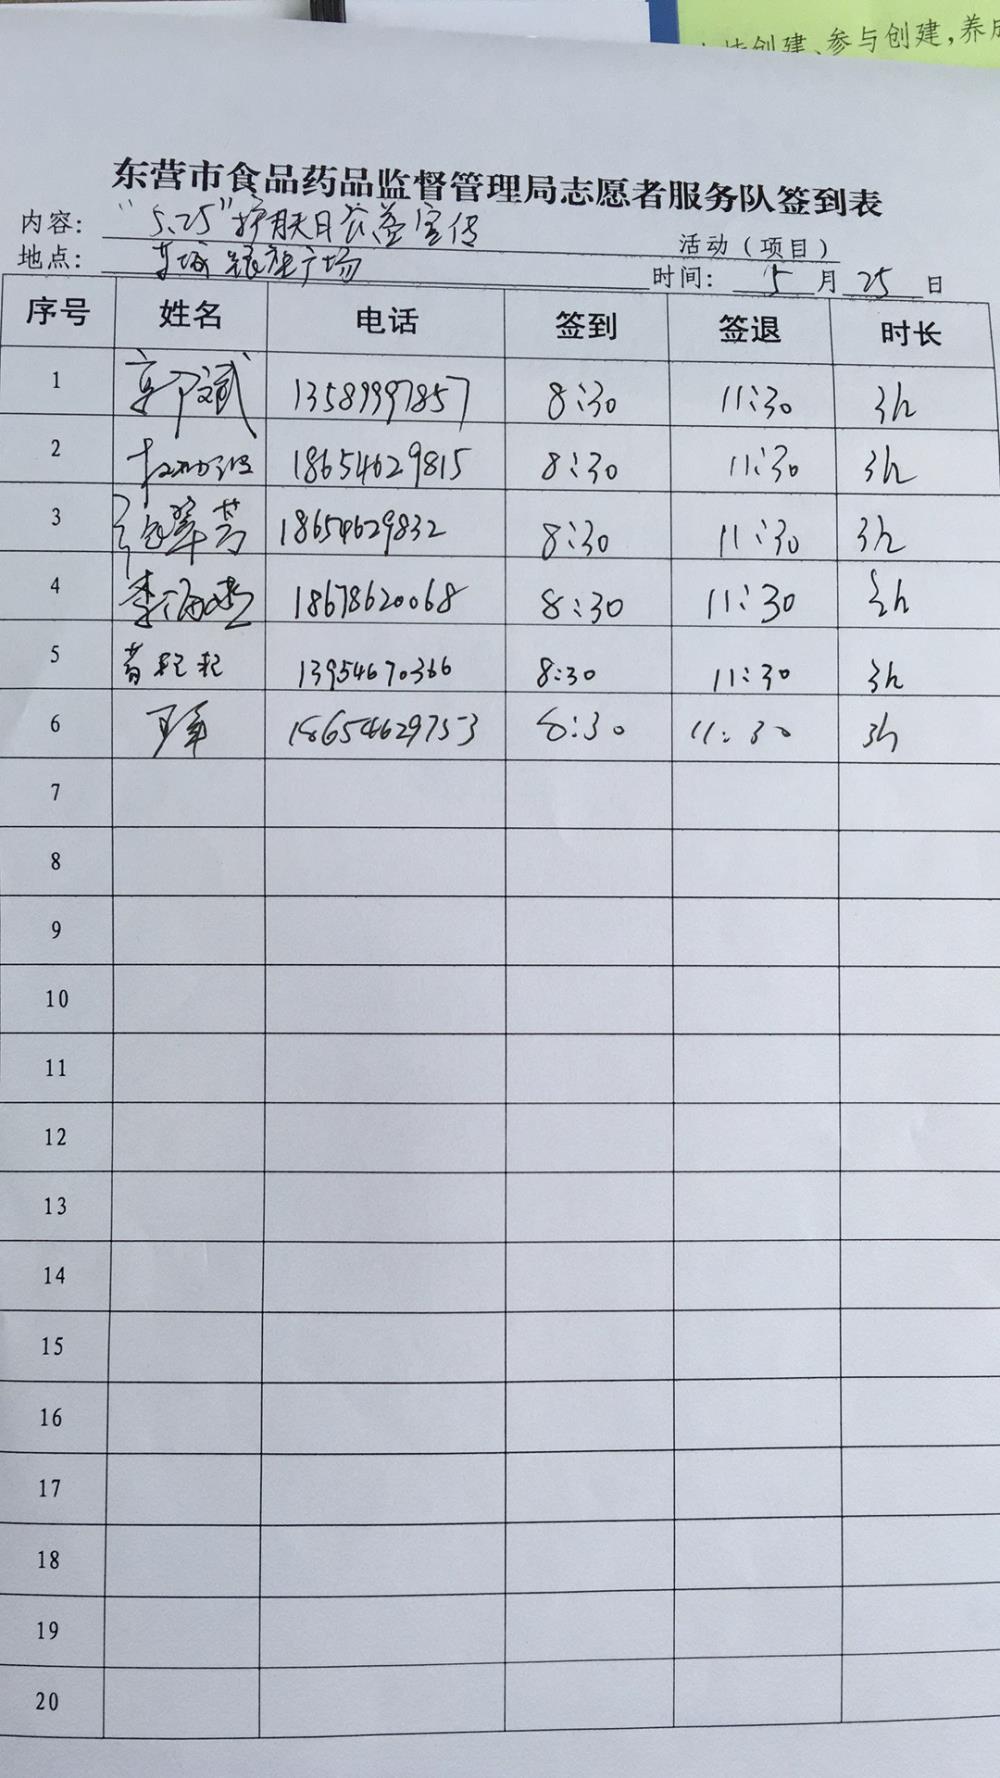 创建、参与创建,养成
东营市食品药品监督管理局志愿者服务队签到表
内容: "5.25"护肤日公益宣传 活动(项目)
地点: 东城银座广场 时间: 5月25日
序号 姓名 电话 签到 签退 时长
1 郭斌 13589997857 8:30 11:30 3h
2 18654629815 8:30 11:30 3h
3 翠芳 18654629832 8:30 11:30 3h
4 李海燕 18678620068 8:30 11:30 3h
5 13954670366 8:30 11:30 3h
6 18654629753 8:30 11:30 3h
7
8
9
10
11
12
13
14
15
16
17
18
19
20